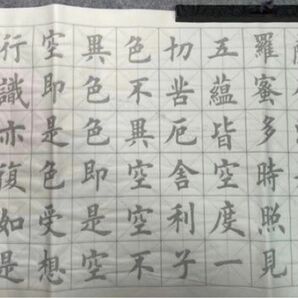 羅蜜多時照見
五蘊皆空度一
切苦厄舍利子
色不異空空不
異色色即是空
空即是色受想
行識亦復如是